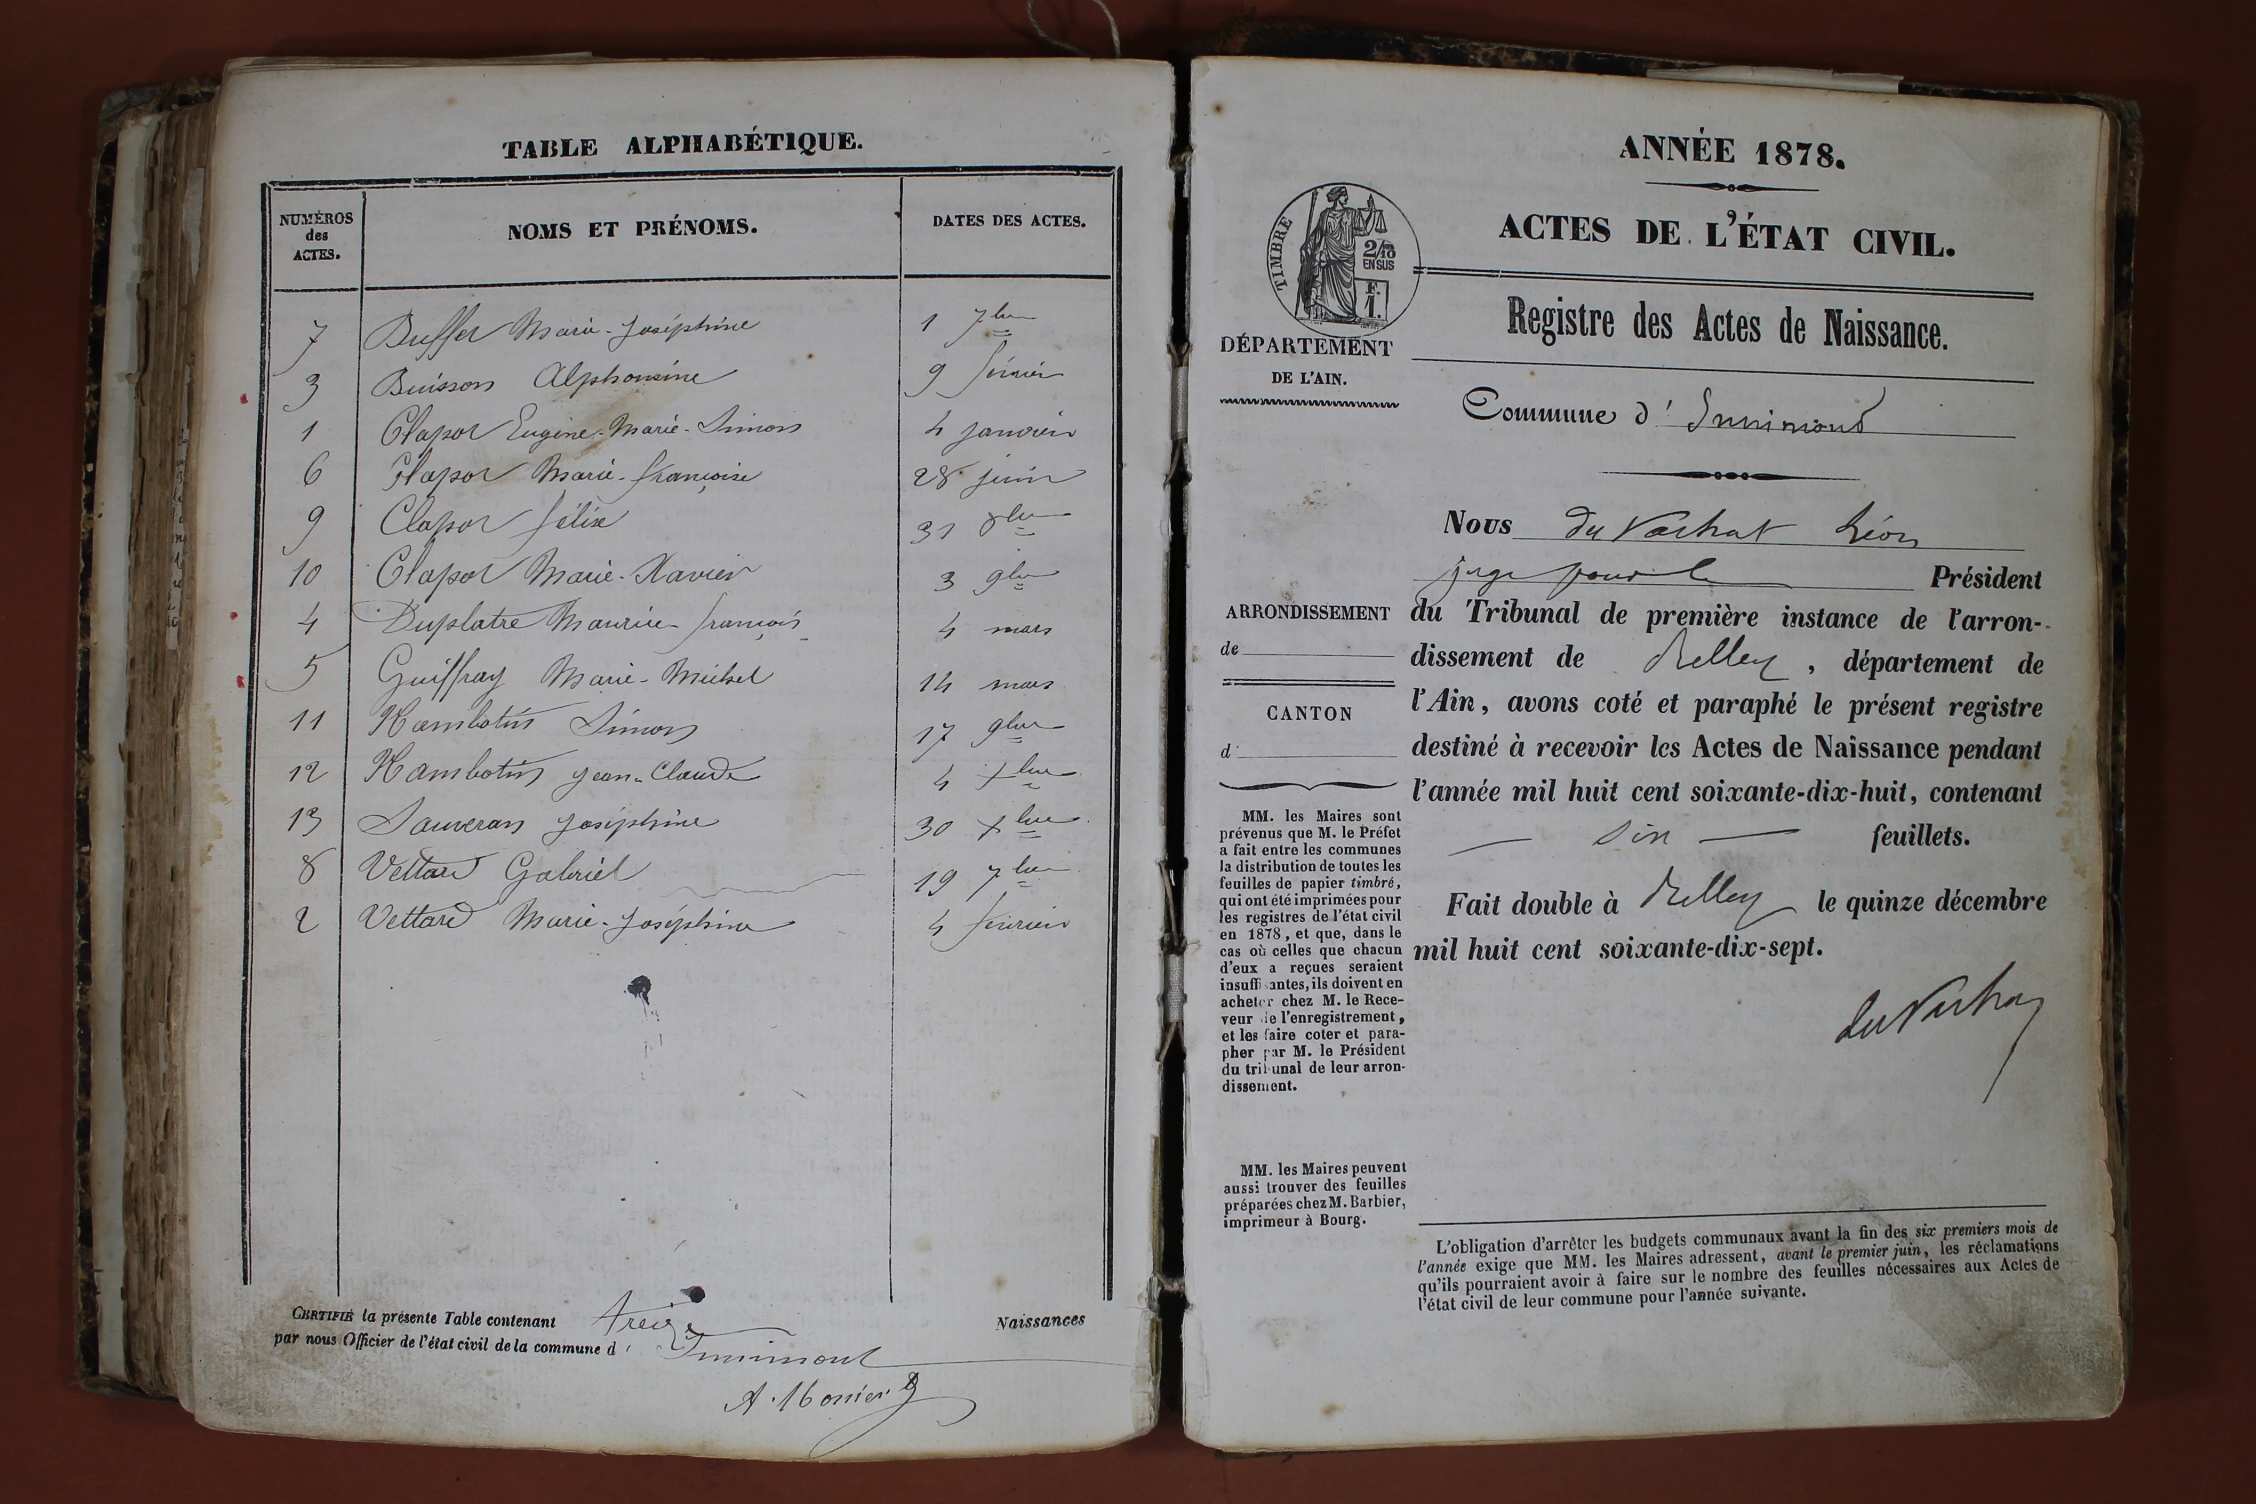 TABLE ALPHABÉTIQUE.
NUMÉROS des ACTES. NOMS ET PRÉNOMS. DATES DES ACTES.
7 Buffet Marie-Joséphine 1 7bre
3 Buisson Alphonsine 9 février
1 Clapot Eugène-Marie-Simon 4 janvier
6 Clapot Marie-françoise 28 juin
9 Clapot félix 31 8bre
10 Clapot Marie-Xavier 3 9bre
4 Duplatre Maurice-françois 4 mars
5 Guiffray Marie-Michel 14 mars
11 Hambotin Simon 17 9bre
12 Hambotin Jean-Claude 4 xbre
13 Sauveran Joséphine 30 xbre
8 Vettard Gabriel 19 7bre
2 Vettard Marie-Joséphine 4 février
CERTIFIÉ la présente Table contenant treize Naissances
par nous Officier de l'état civil de la commune d' Innimont
A. Monier
ANNÉE 1878.
ACTES DE L'ÉTAT CIVIL.
TIMBRE
2/10
EN SUS
F.
1.
DÉPARTEMENT
DE L'AIN.
Registre des Actes de Naissance.
Commune d' Innimond
Nous du Vachat Léon
juge pour le Président
du Tribunal de première instance de l'arron-
dissement de Belley, département de
l'Ain, avons coté et paraphé le présent registre
destiné à recevoir les Actes de Naissance pendant
l'année mil huit cent soixante-dix-huit, contenant
— six — feuillets.
Fait double à Belley le quinze décembre
mil huit cent soixante-dix-sept.
du Vachat
ARRONDISSEMENT
de
CANTON
d
MM. les Maires sont
prévenus que M. le Préfet
a fait entre les communes
la distribution de toutes les
feuilles de papier timbré,
qui ont été imprimées pour
les registres de l'état civil
en 1878, et que, dans le
cas où celles que chacun
d'eux a reçues seraient
insuffisantes, ils doivent en
acheter chez M. le Rece-
veur de l'enregistrement,
et les faire coter et para-
pher par M. le Président
du tribunal de leur arron-
dissement.
MM. les Maires peuvent
aussi trouver des feuilles
préparées chez M. Barbier,
imprimeur à Bourg.
L'obligation d'arrêter les budgets communaux avant la fin des six premiers mois de
l'année exige que MM. les Maires adressent, avant le premier juin, les réclamations
qu'ils pourraient avoir à faire sur le nombre des feuilles nécessaires aux Actes de
l'état civil de leur commune pour l'année suivante.